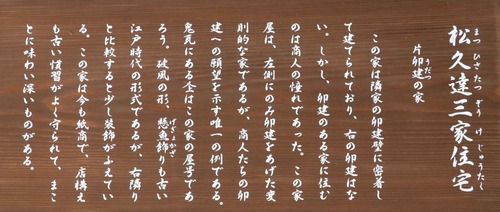 松久達三家住宅
まつひさたつぞうけじゅうたく
片卯建の家
うだつ
この家は隣家の卯建壁に密着し
て建てられており、右の卯建はな
い。しかし、卯建のある家に住む
のは商人の憧れであった。この家
屋は、左側にのみ卯建をあげた変
則的な家であるが、商人たちの卯
建への願望を示す唯一の例である。
鬼瓦にある企はこの家の屋号であ
ろう。破風の形、懸魚飾りも古い
げぎょかざ
江戸時代の形式であるが、右隣り
と比較すると少し装飾がふえてい
る。この家は今も紙商で、店構え
も古い慣習がよく守られて、まこ
とに味わい深いものがある。